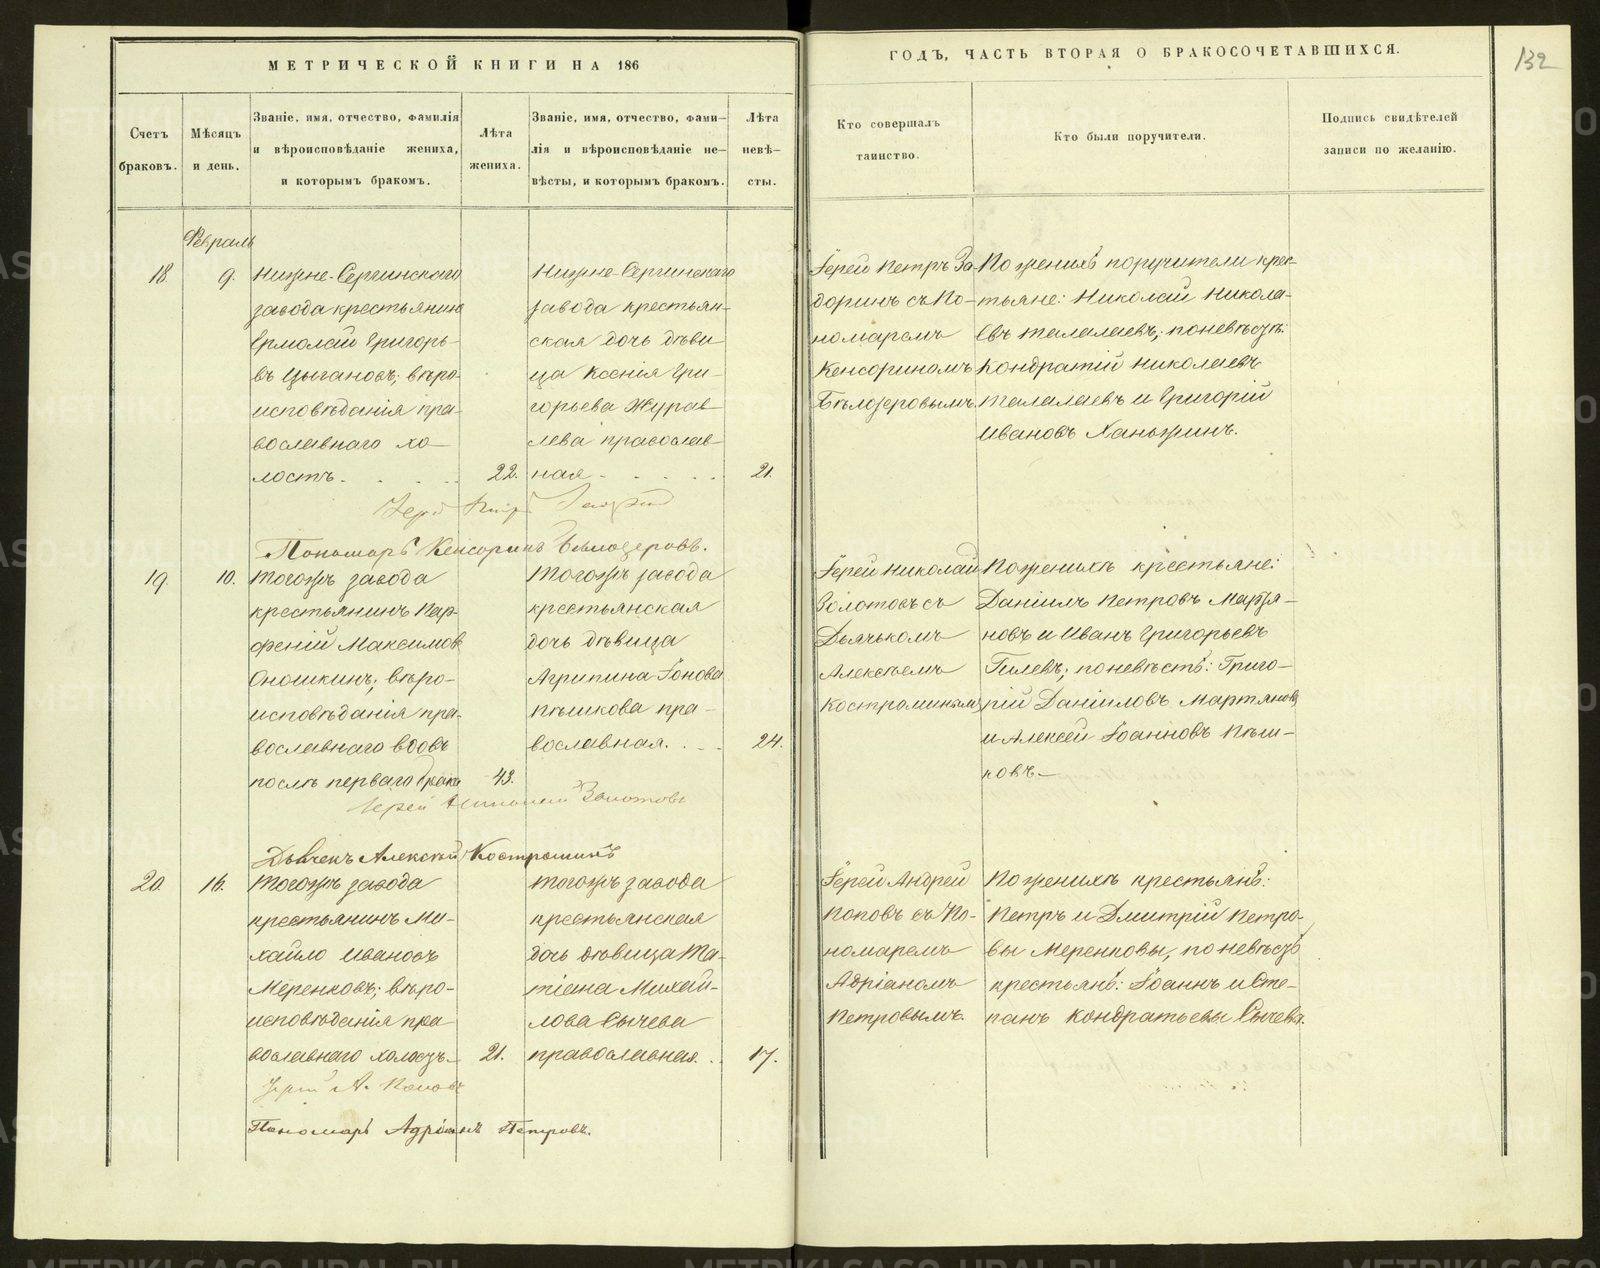 МЕТРИЧЕСКОЙ КНИГИ НА 186
ГОДЪ, ЧАСТЬ ВТОРАЯ О БРАКОСОЧЕТАВШИХСЯ.
132
Счетъ
браковъ.
Мѣсяцъ
и день.
Званіе, имя, отчество, фамилія
и вѣроисповѣданіе жениха,
и которымъ бракомъ.
Лѣта
жениха.
Званіе, имя, отчество, фами–
лія и вѣроисповѣданіе не–
вѣсты, и которымъ бракомъ.
Лѣта
невѣ–
сты.
Кто совершалъ
таинство.
Кто были поручители.
Подпись свидѣтелей
записи по желанію.
Февраль
18.
9.
Нижне-Сергинскаго
завода крестьянинъ
Ермолай Григорь-
въ Цыгановъ; вѣро-
исповѣданія пра-
вославнаго хо-
лостъ.
22.
Нижне-Сергинскаго
завода крестьян-
ская дочь дѣви
ца Ксенія Гри-
горьева Журав-
лева православ-
ная
21.
Іерей Петръ За-
доринъ съ По-
номаремъ
Кенсориномъ
Бѣлозеровымъ.
По женихѣ поручители крес-
тьяне: Николай Никола-
евъ Талалаевъ; по невѣстѣ:
Кондратій Николаевъ
Талалаевъ и Григорій
Ивановъ Ханжинъ.
Іерей Петръ Задоринъ
Пономарь Кенсоринъ Бѣлозеровъ.
19
10.
Тогожъ завода
крестьянинъ Пар-
феній Максимов
Оношкинъ; вѣро-
исповѣданія пра-
вославнаго вдовъ
послѣ перваго брака
43.
Тогожъ завода
крестьянская
дочь дѣвица
Агрипина Іонова
Пѣшкова пра-
вославная.
24.
Іерей Николай
Золотовъ съ
Дьячькомъ
Алексѣемъ
Костроминымъ
По женихѣ крестьяне:
Даніилъ Петровъ Мартя-
новъ и Иванъ Григорьевъ
Гилевъ; по невѣстѣ: Григо-
рій Даніиловъ Мартяновъ
и Алексѣй Іоанновъ Пѣш-
ковъ.
Іерей Николай Золотовъ
Дьячекъ Алексѣй Костроминъ
20.
16.
Тогожъ завода
крестьянинъ Ми-
хайло Ивановъ
Меренковъ; вѣро-
исповѣданія пра
вославнаго холостъ.
21.
Тогожъ завода
крестьянская
дочь дѣвица Та-
тіана Михай-
лова Сычева
православная.
17.
Іерей Андрей
Поповъ съ По-
номаремъ
Адріаномъ
Петровымъ.
По женихѣ крестьянѣ:
Петръ и Дмитрій Петро-
вы Меренковы, по невѣстѣ
крестьянѣ: Іоаннъ и Сте-
панъ Кондратьевы Сычевы.
Іерей А. Поповъ
Пономарь Адріанъ Петровъ.